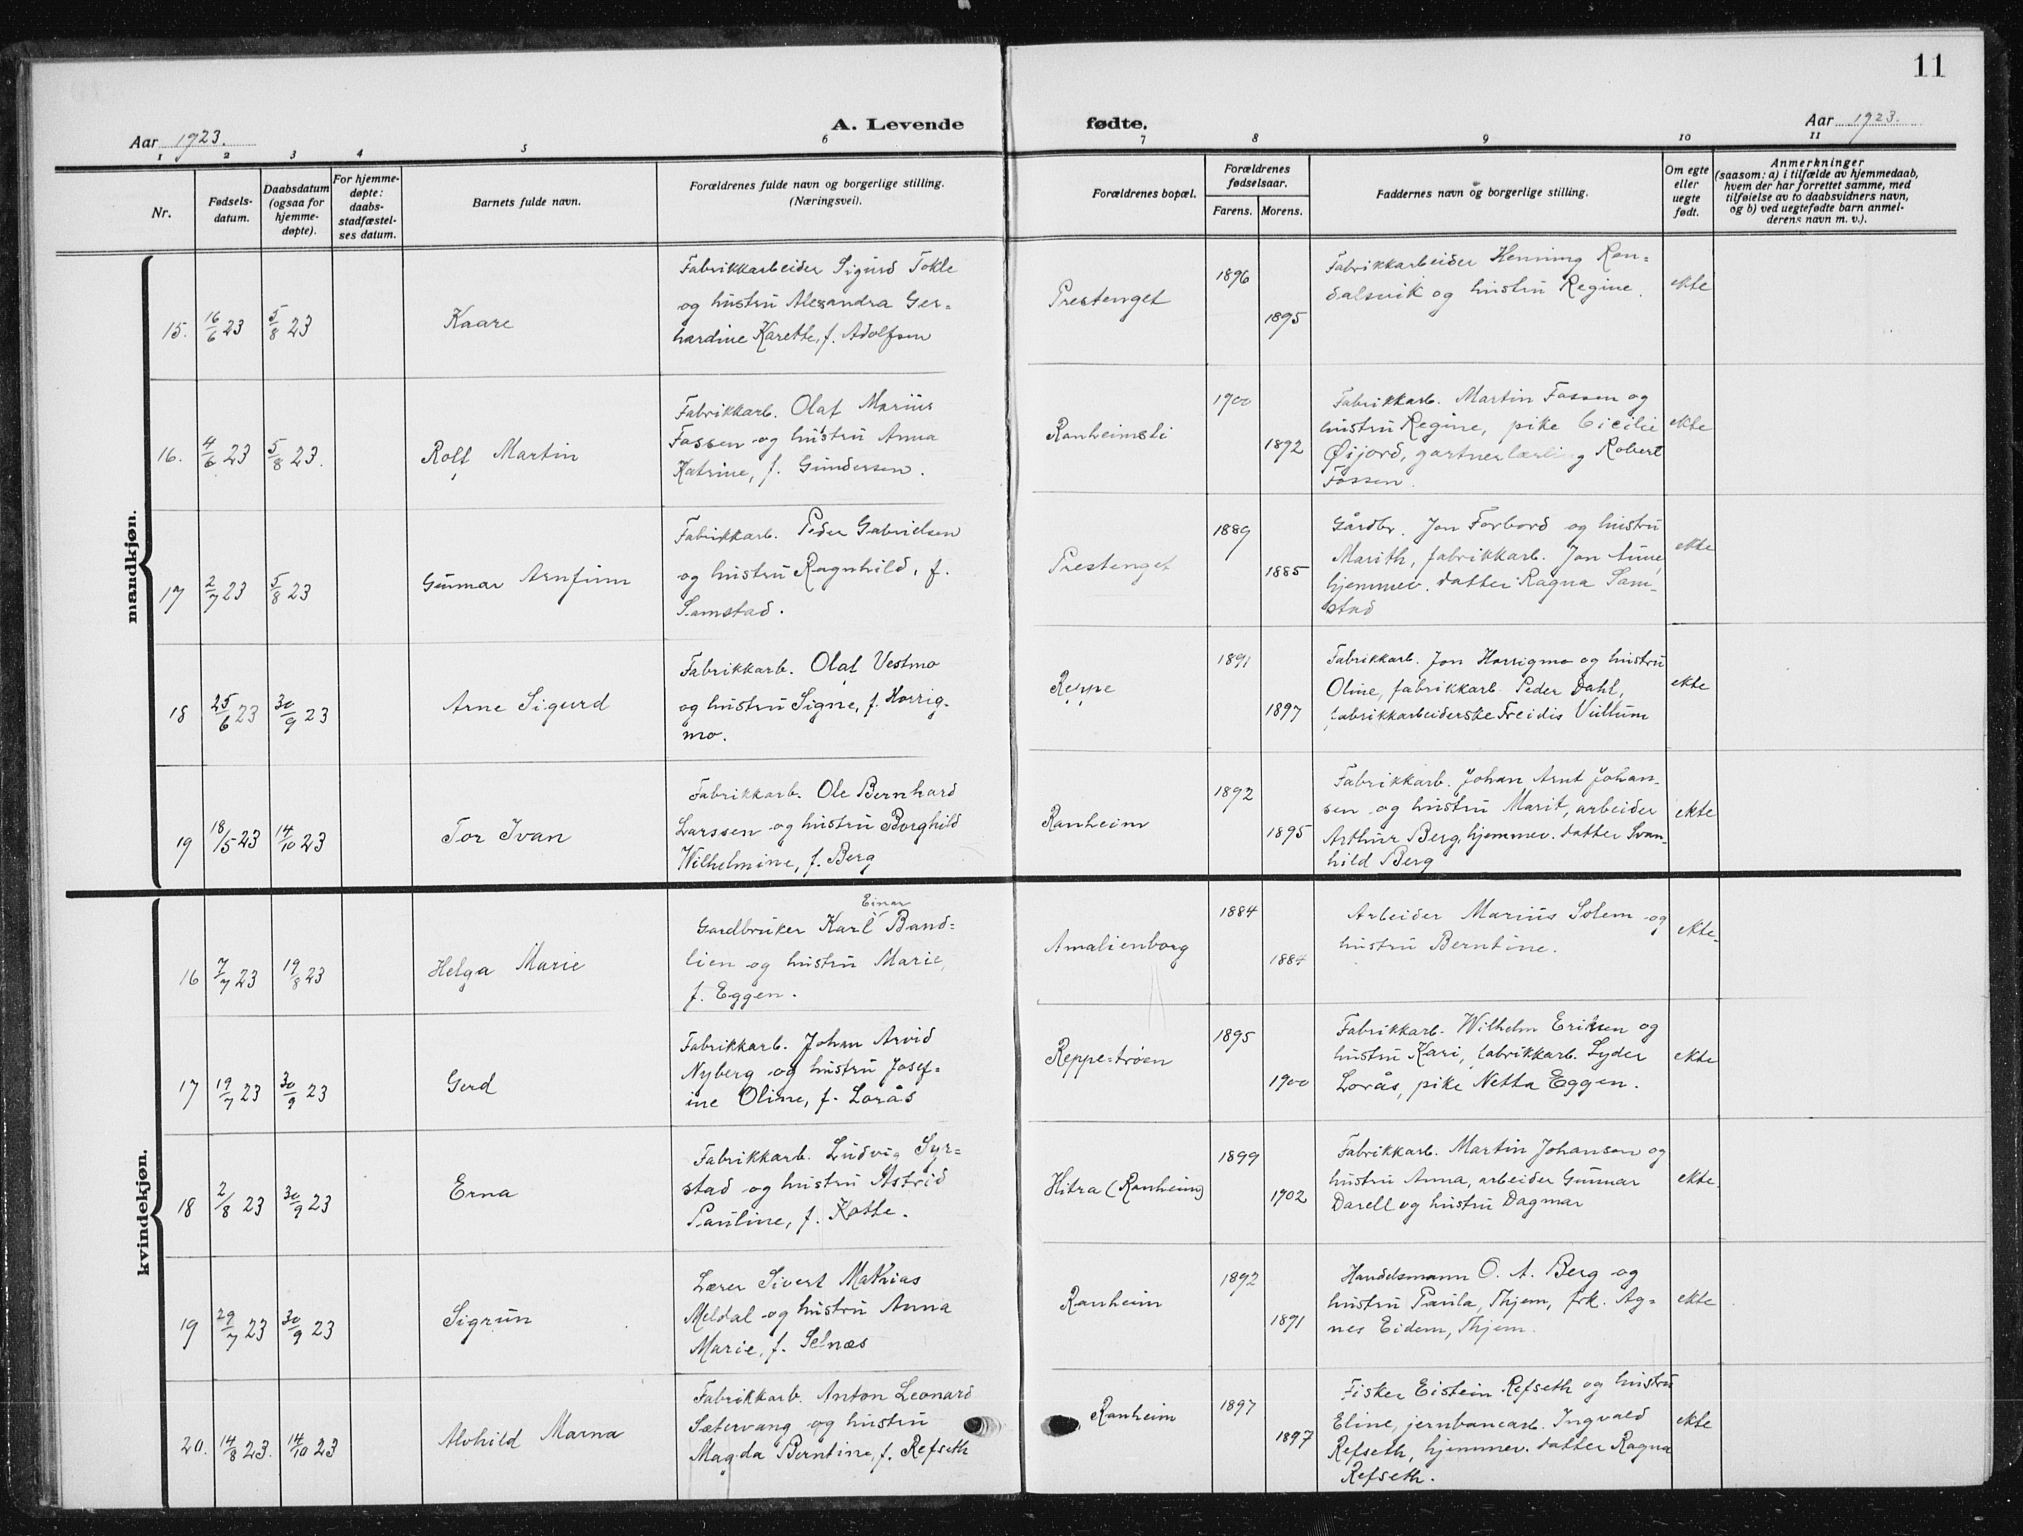 11
Aar 1923.
A. Levende
fødte.
Aar 1923.
1 2 3 4 5 6 7 8 9 10 11
Nr.
Fødsels-
datum.
Daabsdatum
(ogsaa for
hjemme-
døpte).
For hjemme-
døpte:
daabs-
stadfæstel-
ses datum.
Barnets fulde navn.
Forældrenes fulde navn og borgerlige stilling.
(Næringsvei).
Forældrenes bopæl.
Forældrenes
fødselsaar.
Farens. Morens.
Faddernes navn og borgerlige stilling.
Om egte
eller
uegte
født.
Anmerkninger
(saasom: a) i tilfælde av hjemmedaab,
hvem der har forrettet samme, med
tilføielse av to daabsvidners navn,
og b) ved uegtefødte barn anmel-
derens navn m. v.).
mandkjøn.
15. 16/6 23 5/8 23
Kaare
Fabrikkarbeider Sigurd Tokle
og hustru Alexandra Ger-
hardine Karette, f. Adolfsen
Prestenget
1896
1895
Fabrikkarbeider Henning Ran-
dalsvik og hustru Regine.
ekte
16. 4/6 23 5/8 23.
Rolf Martin
Fabrikkarb. Olaf Marius
Fossen og hustru Anna
Katrine, f. Gundersen.
Ranheimsli
1900
1892
Fabrikkarb. Martin Fossen og
hustru Regine, pike Cicilie
Øijord, gartnerlærling Robert
Fossen.
ekte
17 2/7 23 5/8 23
Gunnar Arnfinn
Fabrikkarb. Peder Gabrielsen
og hustru Ragnhild, f.
Samstad.
Prestenget
1889
1885
Gårdbr. Jon Forbord og hustru
Marith, fabrikkarb. Jon Aune,
hjemmev. datter Ragna Sam-
stad
ekte
18 25/6 23 30/9 23
Arne Sigurd
Fabrikkarb. Olaf Vestmo
og hustru Signe, f. Horrig-
mo.
Reppe
1891
1897
Fabrikkarb. Jon Horrigmo og hustru
Oline, fabrikkarb. Peder Dahl,
fabrikkarbeiderske Freidis Vullum
ekte
19 18/5 23 14/10 23
Tor Ivan
Fabrikkarb. Ole Bernhard
Larssen og hustru Borghild
Wilhelmine, f. Berg
Ranheim
1892
1895
Fabrikkarb. Johan Arnt Johan-
sen og hustru Marit, arbeider
Arthur Berg, hjemmev. datter Svan-
hild Berg
ekte
kvindekjøn.
16 7/7 23 19/8 23
Helga Marie
Einar
Gardbruker Karl Band-
lien og hustru Marie,
f. Eggen.
Amalienborg
1884
1884
Arbeider Marius Solem og
hustru Berntine.
ekte.
17 19/7 23 30/9 23
Gerd
Fabrikkarb. Johan Arvid
Nyberg og hustru Josef-
ine Oline, f. Lorås
Reppe-trøen
1895
1900
Fabrikkarb. Wilhelm Eriksen og
hustru Kari, fabrikkarb. Lyder
Lorås, pike Netta Eggen.
ekte
18 2/8 23 30/9 23
Erna
Fabrikkarb. Ludvig Syr-
stad og hustru Astrid
Pauline, f. Kotte.
Hitra (Ranheim)
1899
1902
Fabrikkarb. Martin Johansen og
hustru Anna, arbeider Gunnar
Darell og hustru Dagmar
ekte.
19 29/7 23 30/9 23
Sigrun
Lærer Sivert Mathias
Meldal og hustru Anna
Marie, f. Selnæs
Ranheim
1892
1891
Handelsmann O. A. Berg og
hustru Paula, Thjem, frk. Ag-
nes Eidem, Thjem.
ekte
20. 14/8 23. 14/10 23
Alvhild Marna
Fabrikkarb. Anton Leonard
Sætervang og hustru
Magda Berntine, f. Refseth
Ranheim
1897
1897
Fisker Eistein Refseth og hustru
Eline, jernbanearb. Ingvald
Refseth, hjemmev. datter Ragna
Refseth.
ekte